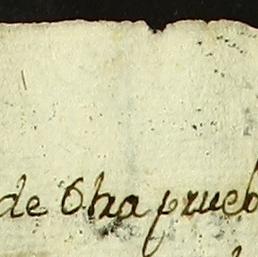 de Otra prueb